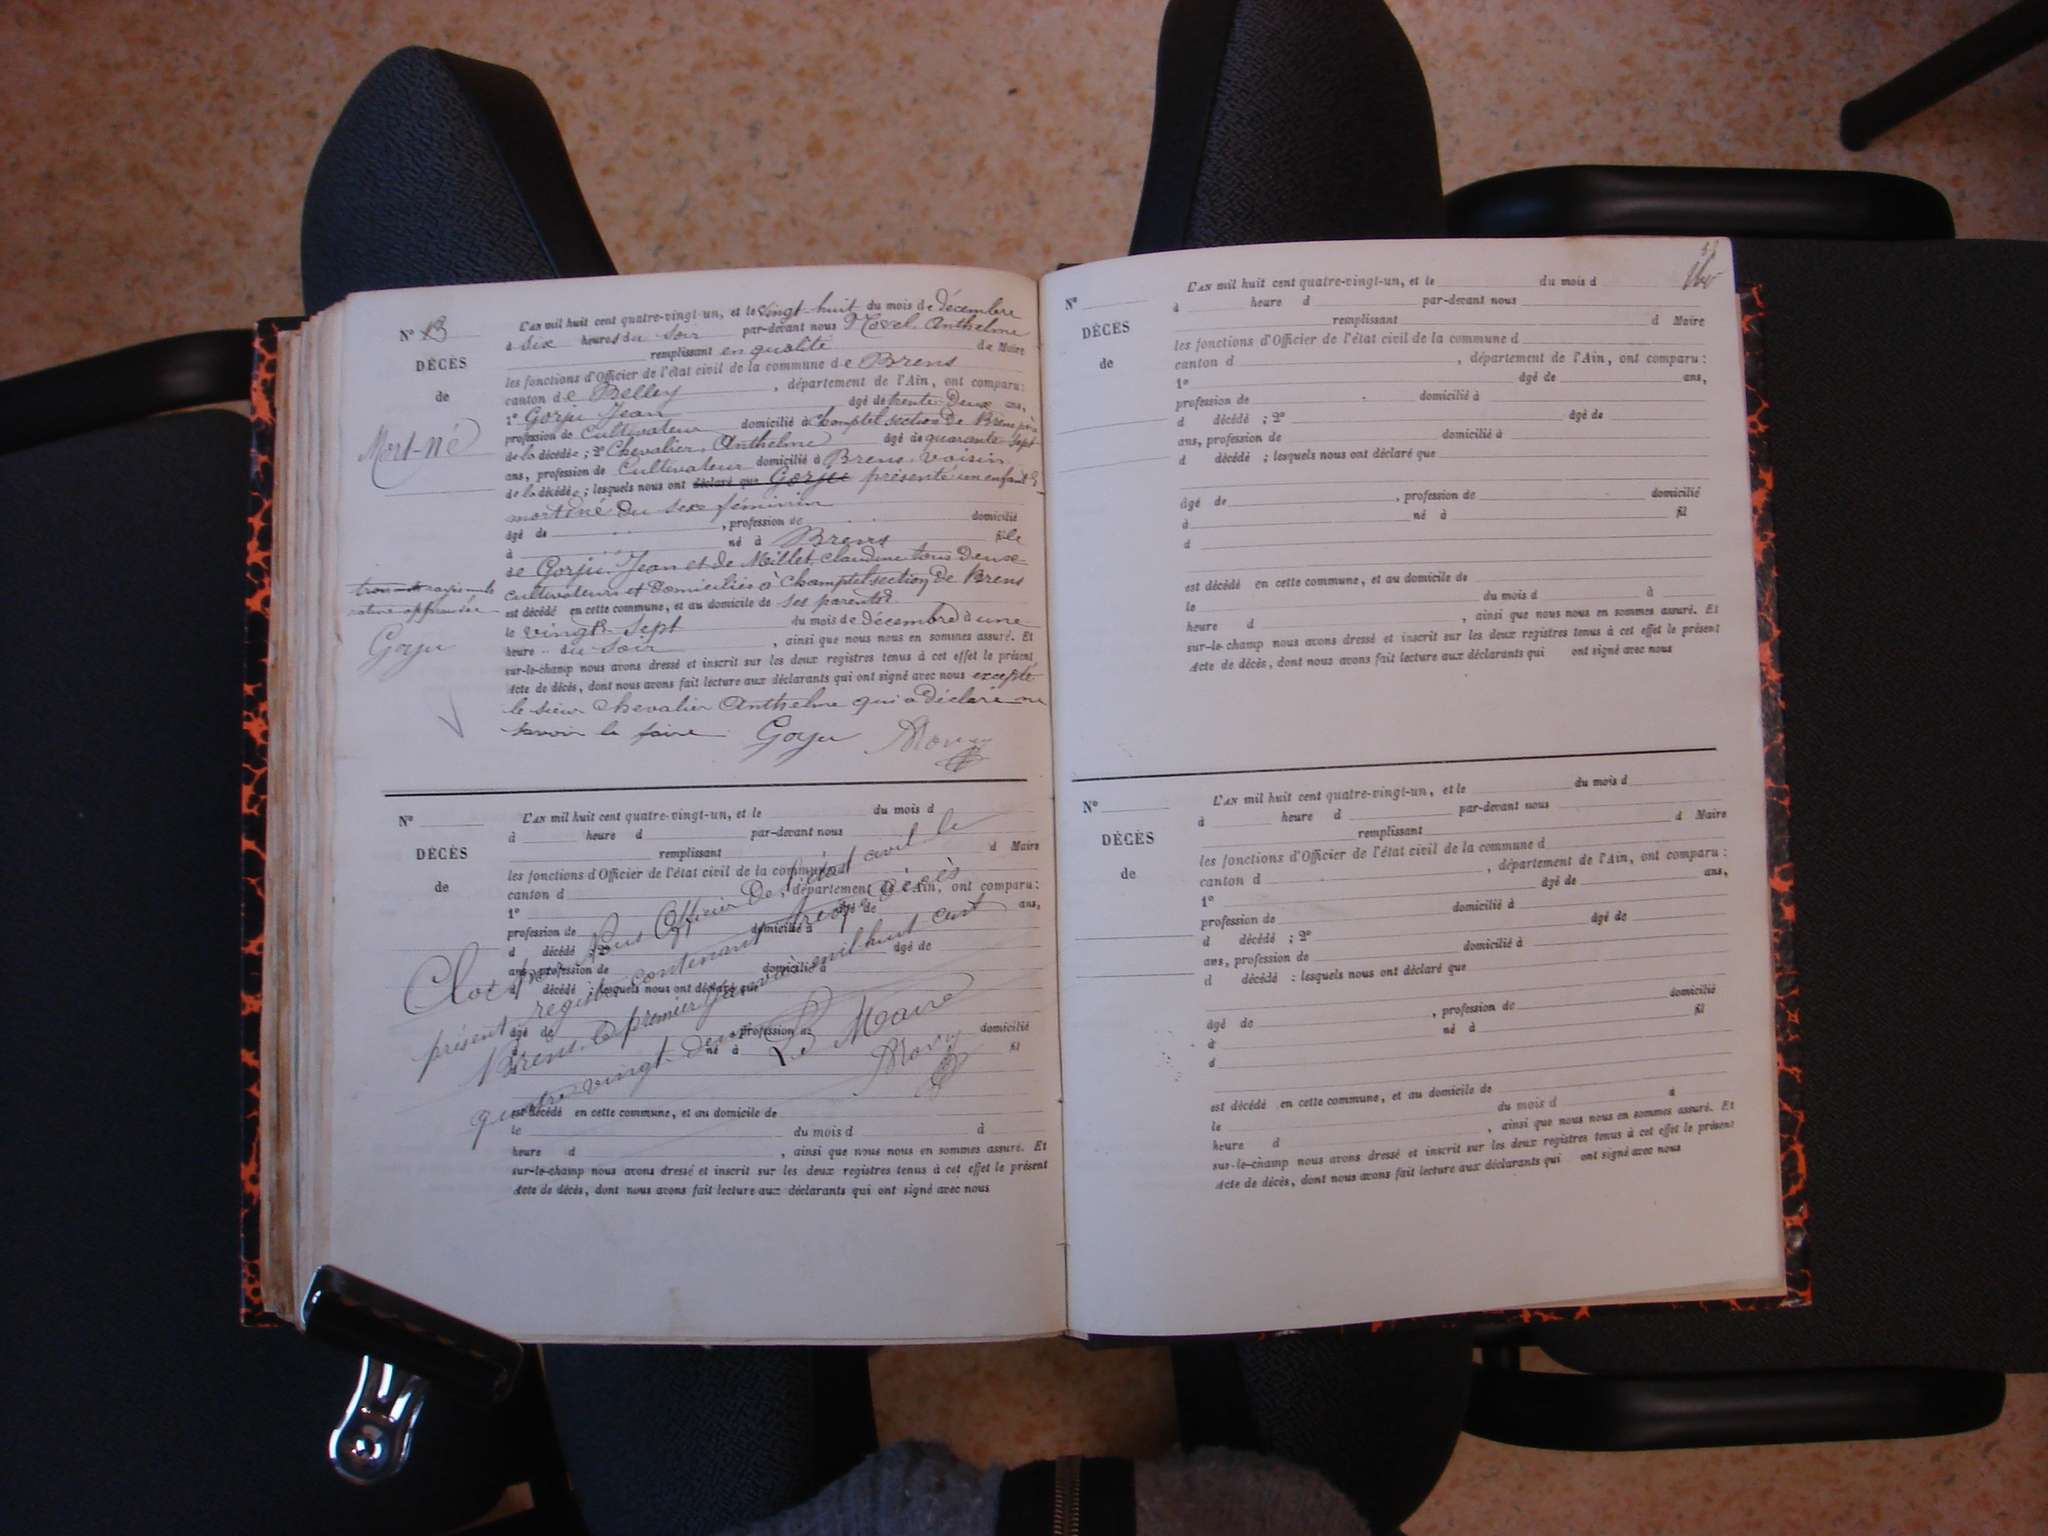 N° 13
DÉCÈS
de
Mort-né
L'AN mil huit cent quatre-vingt-un, et le vingt-huit du mois de décembre
à six heures du soir par-devant nous Anthelme
remplissant en qualité de Maire
les fonctions d'Officier de l'état civil de la commune de Brens
canton de Belley, département de l'Ain, ont comparu:
1° Gorju Jean âgé de trente deux ans,
profession de Cultivateur domicilié à Champtel section de Brens père
de la décédée; 2° Chevalier Anthelme âgé de quarante sept
ans, profession de Cultivateur domicilié à Brens, voisin
de la décédée; lesquels nous ont déclaré que Gorju présenté un enfant
mort-né du sexe féminin
âgé de , profession de domicilié
à né à Brens fille
de Gorju Jean et de Millet Claudine tous deux
cultivateurs et domiciliés à Champtel section de Brens
est décédé en cette commune, et au domicile de ses parents
le vingt sept du mois de décembre à une
heure du soir, ainsi que nous nous en sommes assuré. Et
sur-le-champ nous avons dressé et inscrit sur les deux registres tenus à cet effet le présent
Acte de décès, dont nous avons fait lecture aux déclarants qui ont signé avec nous excepté
le sieur Chevalier Anthelme qui a déclaré ne
savoir le faire Gorju
trois mots rayés nuls
Gorju
N°
DÉCÈS
de
L'AN mil huit cent quatre-vingt-un, et le du mois d
à heure d par-devant nous
remplissant d Maire
les fonctions d'Officier de l'état civil de la commune d
canton d , département de l'Ain, ont comparu:
1° âgé de ans,
profession de domicilié à
d décédé ; 2° âgé de
ans, profession de domicilié à
d décédé ; lesquels nous ont déclaré que
âgé de , profession de domicilié
à né à fil
d
est décédé en cette commune, et au domicile de
le du mois d à
heure d , ainsi que nous nous en sommes assuré. Et
sur-le-champ nous avons dressé et inscrit sur les deux registres tenus à cet effet le présent
Acte de décès, dont nous avons fait lecture aux déclarants qui ont signé avec nous
Clos par Nous Officier de l'état civil le
présent registre contenant treize décès
Brens le premier janvier mil huit cent
quatre vingt-deux Le Maire
N°
DÉCÈS
de
L'AN mil huit cent quatre-vingt-un, et le du mois d
à heure d par-devant nous
remplissant d Maire
les fonctions d'Officier de l'état civil de la commune d
canton d , département de l'Ain, ont comparu:
1° âgé de ans,
profession de domicilié à
d décédé ; 2° âgé de
ans, profession de domicilié à
d décédé ; lesquels nous ont déclaré que
âgé de , profession de domicilié
à né à fil
d
est décédé en cette commune, et au domicile de
le du mois d à
heure d , ainsi que nous nous en sommes assuré. Et
sur-le-champ nous avons dressé et inscrit sur les deux registres tenus à cet effet le présent
Acte de décès, dont nous avons fait lecture aux déclarants qui ont signé avec nous
N°
DÉCÈS
de
L'AN mil huit cent quatre-vingt-un, et le du mois d
à heure d par-devant nous
remplissant d Maire
les fonctions d'Officier de l'état civil de la commune d
canton d , département de l'Ain, ont comparu:
1° âgé de ans,
profession de domicilié à
d décédé ; 2° âgé de
ans, profession de domicilié à
d décédé : lesquels nous ont déclaré que
âgé de , profession de domicilié
à né à fil
d
est décédé en cette commune, et au domicile de
le du mois d à
heure d , ainsi que nous nous en sommes assuré. Et
sur-le-champ nous avons dressé et inscrit sur les deux registres tenus à cet effet le présent
Acte de décès, dont nous avons fait lecture aux déclarants qui ont signé avec nous